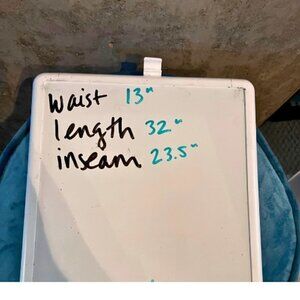 waist 13"
length 32"
inseam 23.5"